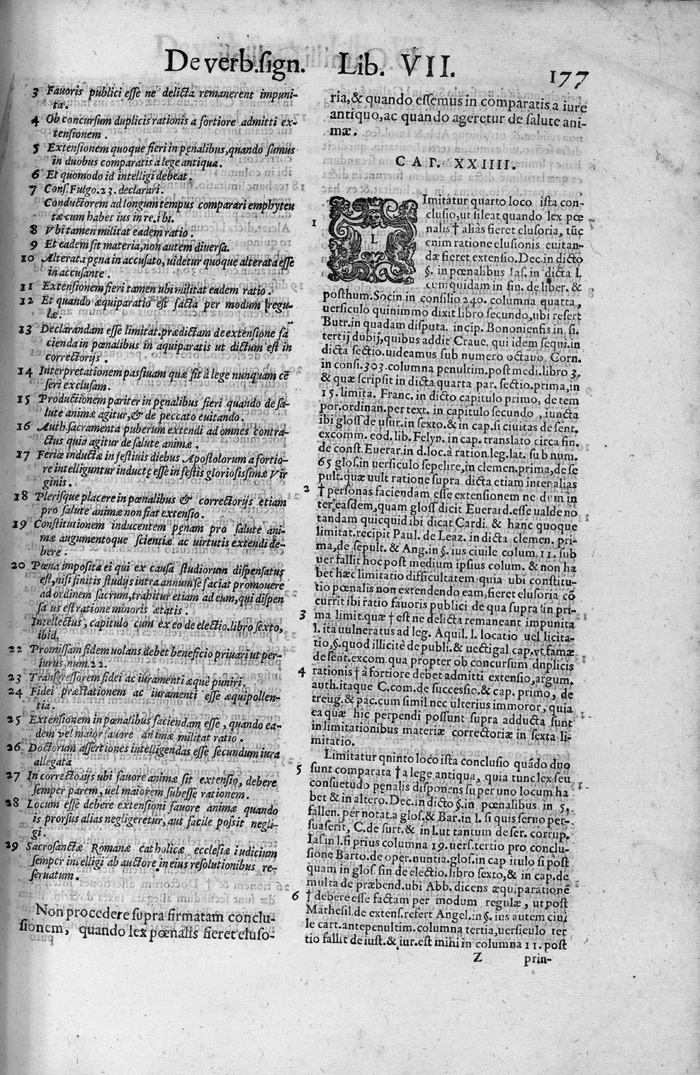 De verb.sign. Lib. VII. 177
3 Fauoris publici esse ne delicta remanerent impuni-
ta.
4 Ob concursum duplicis rationis a fortiore admitti ex-
tensionem.
5 Extensionem quoque fieri in penalibus, quando sumus
in duobus comparatis a lege antiqua.
6 Et quomodo id intelligi debeat.
7 Cons. Fulgo. 23. declarari.
Conductorem ad longum tempus comparari emphyteu
tæ cum habet ius in re. ibi.
8 Vbi tamen militat eadem ratio.
9 Et eadem sit materia, non autem diuersa.
10 Alterata pena in accusato, uidetur quoque alterata esse
in accusante.
11 Extensionem fieri tamen ubi militat eadem ratio.
12 Et quando æquiparatio est facta per modum regu-
læ.
13 Declarandam esse limitat. prædictam de extensione fa
cienda in pœnalibus in æquiparatis ut dictum est in
correctorijs.
14 Interpretationem passiuam quæ fit à lege nunquam cē
seri exclusam.
15 Productionem pariter in penalibus fieri quando de sa-
lute animæ agitur, & de peccato euitando.
16 Auth. sacramenta puberum extendi ad omnes contra-
ctus quia agitur de salute animæ.
17 Feriæ inductæ in festiuis diebus Apostolorum a fortio-
re intelliguntur inductę esse in festis gloriosissimæ Vir
ginis.
18 Plerisque placere in pœnalibus & correctorijs etiam
pro salute animæ non fiat extensio.
19 Constitutionem inducentem penam pro salute ani-
mæ augumentoque scientiæ ac uirtutis extendi de-
bere.
20 Pœna imposita ei qui ex causa studiorum dispensatus
est, nisi finitis studijs intra annum se faciat promouere
ad ordinem sacrum, trahitur etiam ad eum, qui dispen
sa us est ratione minoris ætatis.
Intellectus, capitulo cum ex eo de electio. libro sexto,
ibid.
22 Promissam fidem uiolans debet beneficio priuari ut per-
iurus num. 22.
23 Transgressorem fidei ac iuramenti æque puniri.
24 Fidei præstationem ac iuramenti esse æquipollen-
tia.
25 Extensionem in pœnalibus faciendam esse, quando ea-
dem vel maior fauore animæ militat ratio.
26 Doctorum assertiones intelligendas esse secundum iura
allegata
27 In correctorijs ubi fauore animæ sit extensio, debere
semper parem, uel maiorem subesse rationem.
28 Locum esse debere extensioni fauore animæ quando
is prorsus alias negligeretur, aut facile possit negli-
gi.
29 Sacrosanctæ Romanæ catholicæ ecclesiæ iudicium
semper intelligi ab auctore in eius resolutionibus re-
seruatum.
Non procedere supra firmatam conclu-
sionem, quando lex pœnalis fieret eluso-
ria, & quando essemus in comparatis a iure
antiquo, ac quando ageretur de salute ani-
mæ.
CAP. XXIIII.
1 LImitatur quarto loco ista con-
clusio, ut fileat quando lex pœ
nalis † aliàs fieret elusoria, tūc
enim ratione elusionis euitan-
dæ fieret extensio. Dec. in dicto
§. in pœnalibus Ias. in dicta l.
cem quidam in fin. de liber. &
posthum. Socin in consilio 240. columna quarta,
uersiculo quinimmo dixit libro secundo, ubi refert
Butr. in quadam disputa. incip. Bononiensis in. fi.
tertij dubij, quibus addit Craue. qui idem sequi. in
dicta sectio. uideamus sub numero octauo, Corn.
in consi. 303. columna penultim. post medi. libro 3.
& quæ scripsit in dicta quarta par. sectio. prima, in
15. limita. Franc. in dicto capitulo primo, de tem
por. ordinan. per text. in capitulo secundo, iuncta
ibi gloss de usur. in sexto. & in cap. si ciuitas de sent.
excomm. eod. lib. Felyn. in cap. translato circa fin.
de const. Euerar. in d. loc. à ration. leg. lat. sub num.
65 glos. in uersiculo sepelire, in clemen. prima, de se
pult. quæ uult ratione supra dicta etiam inter alias
2 † personas faciendam esse extensionem ne dum in
ter easdem, quam gloss dicit Euerard. esse ualde no
tandam quicquid ibi dicat Cardi. & hanc quoque
limitat. recipit Paul. de Leaz. in dicta clemen. pri-
ma, de sepult. & Ang. in §. ius ciuile colum 11. sub
uer fallit hoc post medium ipsius colum. & non ha
bet hæc limitatio difficultatem quia ubi constitu-
tio pœnalis non extendendo eam, fieret elusoria cō
currit ibi ratio fauoris publici de qua supra in pri-
3 ma limit. quæ † est ne delicta remaneant impunita
l. ita uulneratus ad leg. Aquil. l. locatio uel licita-
tio, §. quod illicitè de publi. & uectigal cap. ut famæ
de sent. excom. qua propter ob concursum duplicis
4 rationis † à fortiore debet admitti extensio, argum.
auth. itaque C. com. de successio. & cap. primo, de
treug. & pac. cum simil. nec ulterius immoror, quia
ea quæ hic perpendi possunt supra adducta sunt
in limitationibus materiæ correctoriæ in sexta li-
mitatio.
Limitatur qninto loco ista conclusio quādo duo
5 sunt comparata † a lege antiqua, quia tunc lex seu
consuetudo penalis disponens super uno locum ha
bet & in altero. Dec. in dicto §. in pœnalibus in 5,
fallen. per notat. a glos, & Bar. in l. si quis seruo per-
suaserit, C. de furt. & in l. ut tantum de ser. corrup.
Ias in l. si prius columna 19. uers. tertio pro conclu-
sione Barto. de oper. nuntia. glos. in cap itulo si post
quam in glos. fin de electio. libro sexto, & in cap. de
multa de præbend. ubi Abb. dicens æquiparationē
6 † debere esse factam per modum regulæ, ut post
Mathesil. de extens. refert Angel. in §. ius autem ciui
le cart. antepenultim. columna tertia, uersiculo ter
tio fallit de iust. & iur. est mihi in columna 11. post
Z prin-